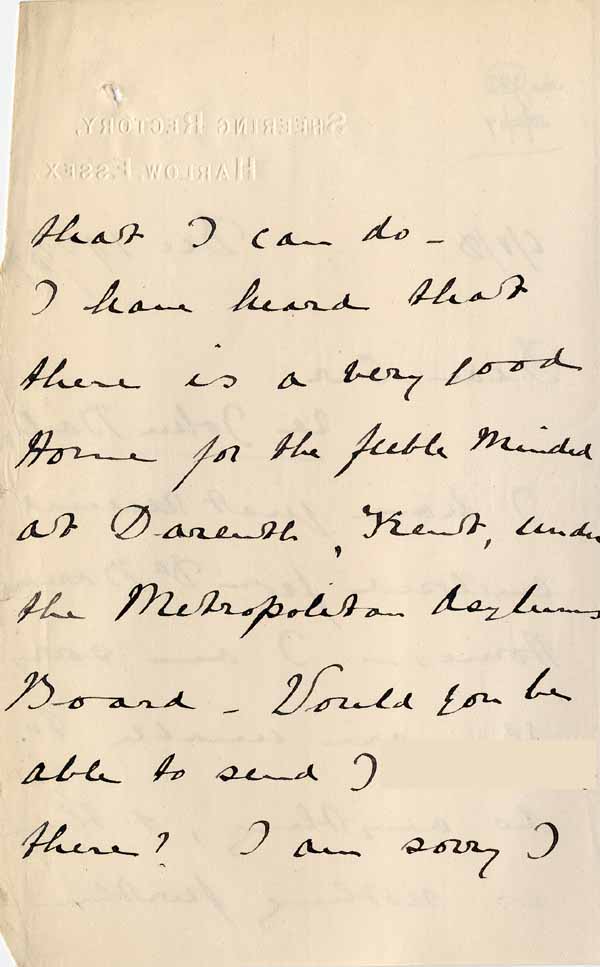 SHEERING RECTORY,
HARLOW, ESSEX.
that I can do –
I have heard that
there is a very good
Home for the feeble Minded
at Darenth, Kent, under
the Metropolitan Asylums
Board – Would you be
able to send J
there? I am sorry I